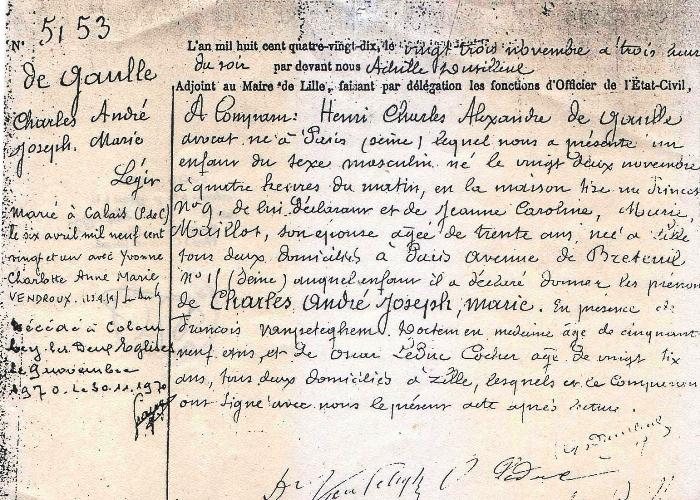 N° 5153
de Gaulle
Charles André
Joseph Marie
Légit
Marié à Calais (P.de C)
le six avril mil neuf cent
vingt et un avec Yvonne
Charlotte Anne Marie
VENDROUX.
Décédé à Colom
bey-les-Deux-Eglises
le 9 novembre
1970. Le 30.11.1970
L'an mil huit cent quatre-vingt-dix, le vingt trois novembre à trois heures
du soir par devant nous Achille
Adjoint au Maire de Lille, faisant par délégation les fonctions d'Officier de l'État-Civil,
A Comparu: Henri Charles Alexandre de Gaulle
avocat né à Paris (Seine) lequel nous a présenté un
enfant du sexe masculin né le vingt deux novembre
à quatre heures du matin, en la maison sise rue Princesse
N° 9, de lui déclarant et de Jeanne Caroline, Marie,
Maillot, son épouse âgée de trente ans, née à Lille
tous deux domiciliés à Paris avenue de Breteuil
N° 15 (Seine) auquel enfant il a déclaré donner les prénoms
de Charles André Joseph, Marie. En présence de
François Docteur en médecine âgé de cinquante
neuf ans, et de Oscar Leduc Cocher âgé de vingt six
ans, tous deux domiciliés à Lille, lesquels et le Comparant
ont signé avec nous le présent acte après lecture.